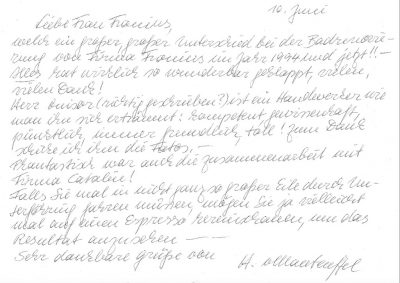 10. Juni
Liebe Frau Fronius,
welch ein großer, großer Unterschied bei der Badrenovie-
rung von Firma Fronius im Jahr 1994 und jetzt!! –
Alles hat wirklich so wunderbar geklappt, vielen,
vielen Dank!
Herr (richtig geschrieben?) ist ein Handwerker wie
man ihn sich erträumt: kompetent, gewissenhaft,
pünktlich, immer freundlich, toll! Zum Dank
schicke ich ihm die Fotos. –
Phantastisch war auch die Zusammenarbeit mit
Firma Catalini!
Falls Sie mal in nicht ganz so großer Eile durch Un-
fahren müssen, mögen Sie ja vielleicht
mal auf einen Espresso hereinschauen, um das
Resultat anzusehen –
Sehr dankbare Grüße von
H. vManteuffel